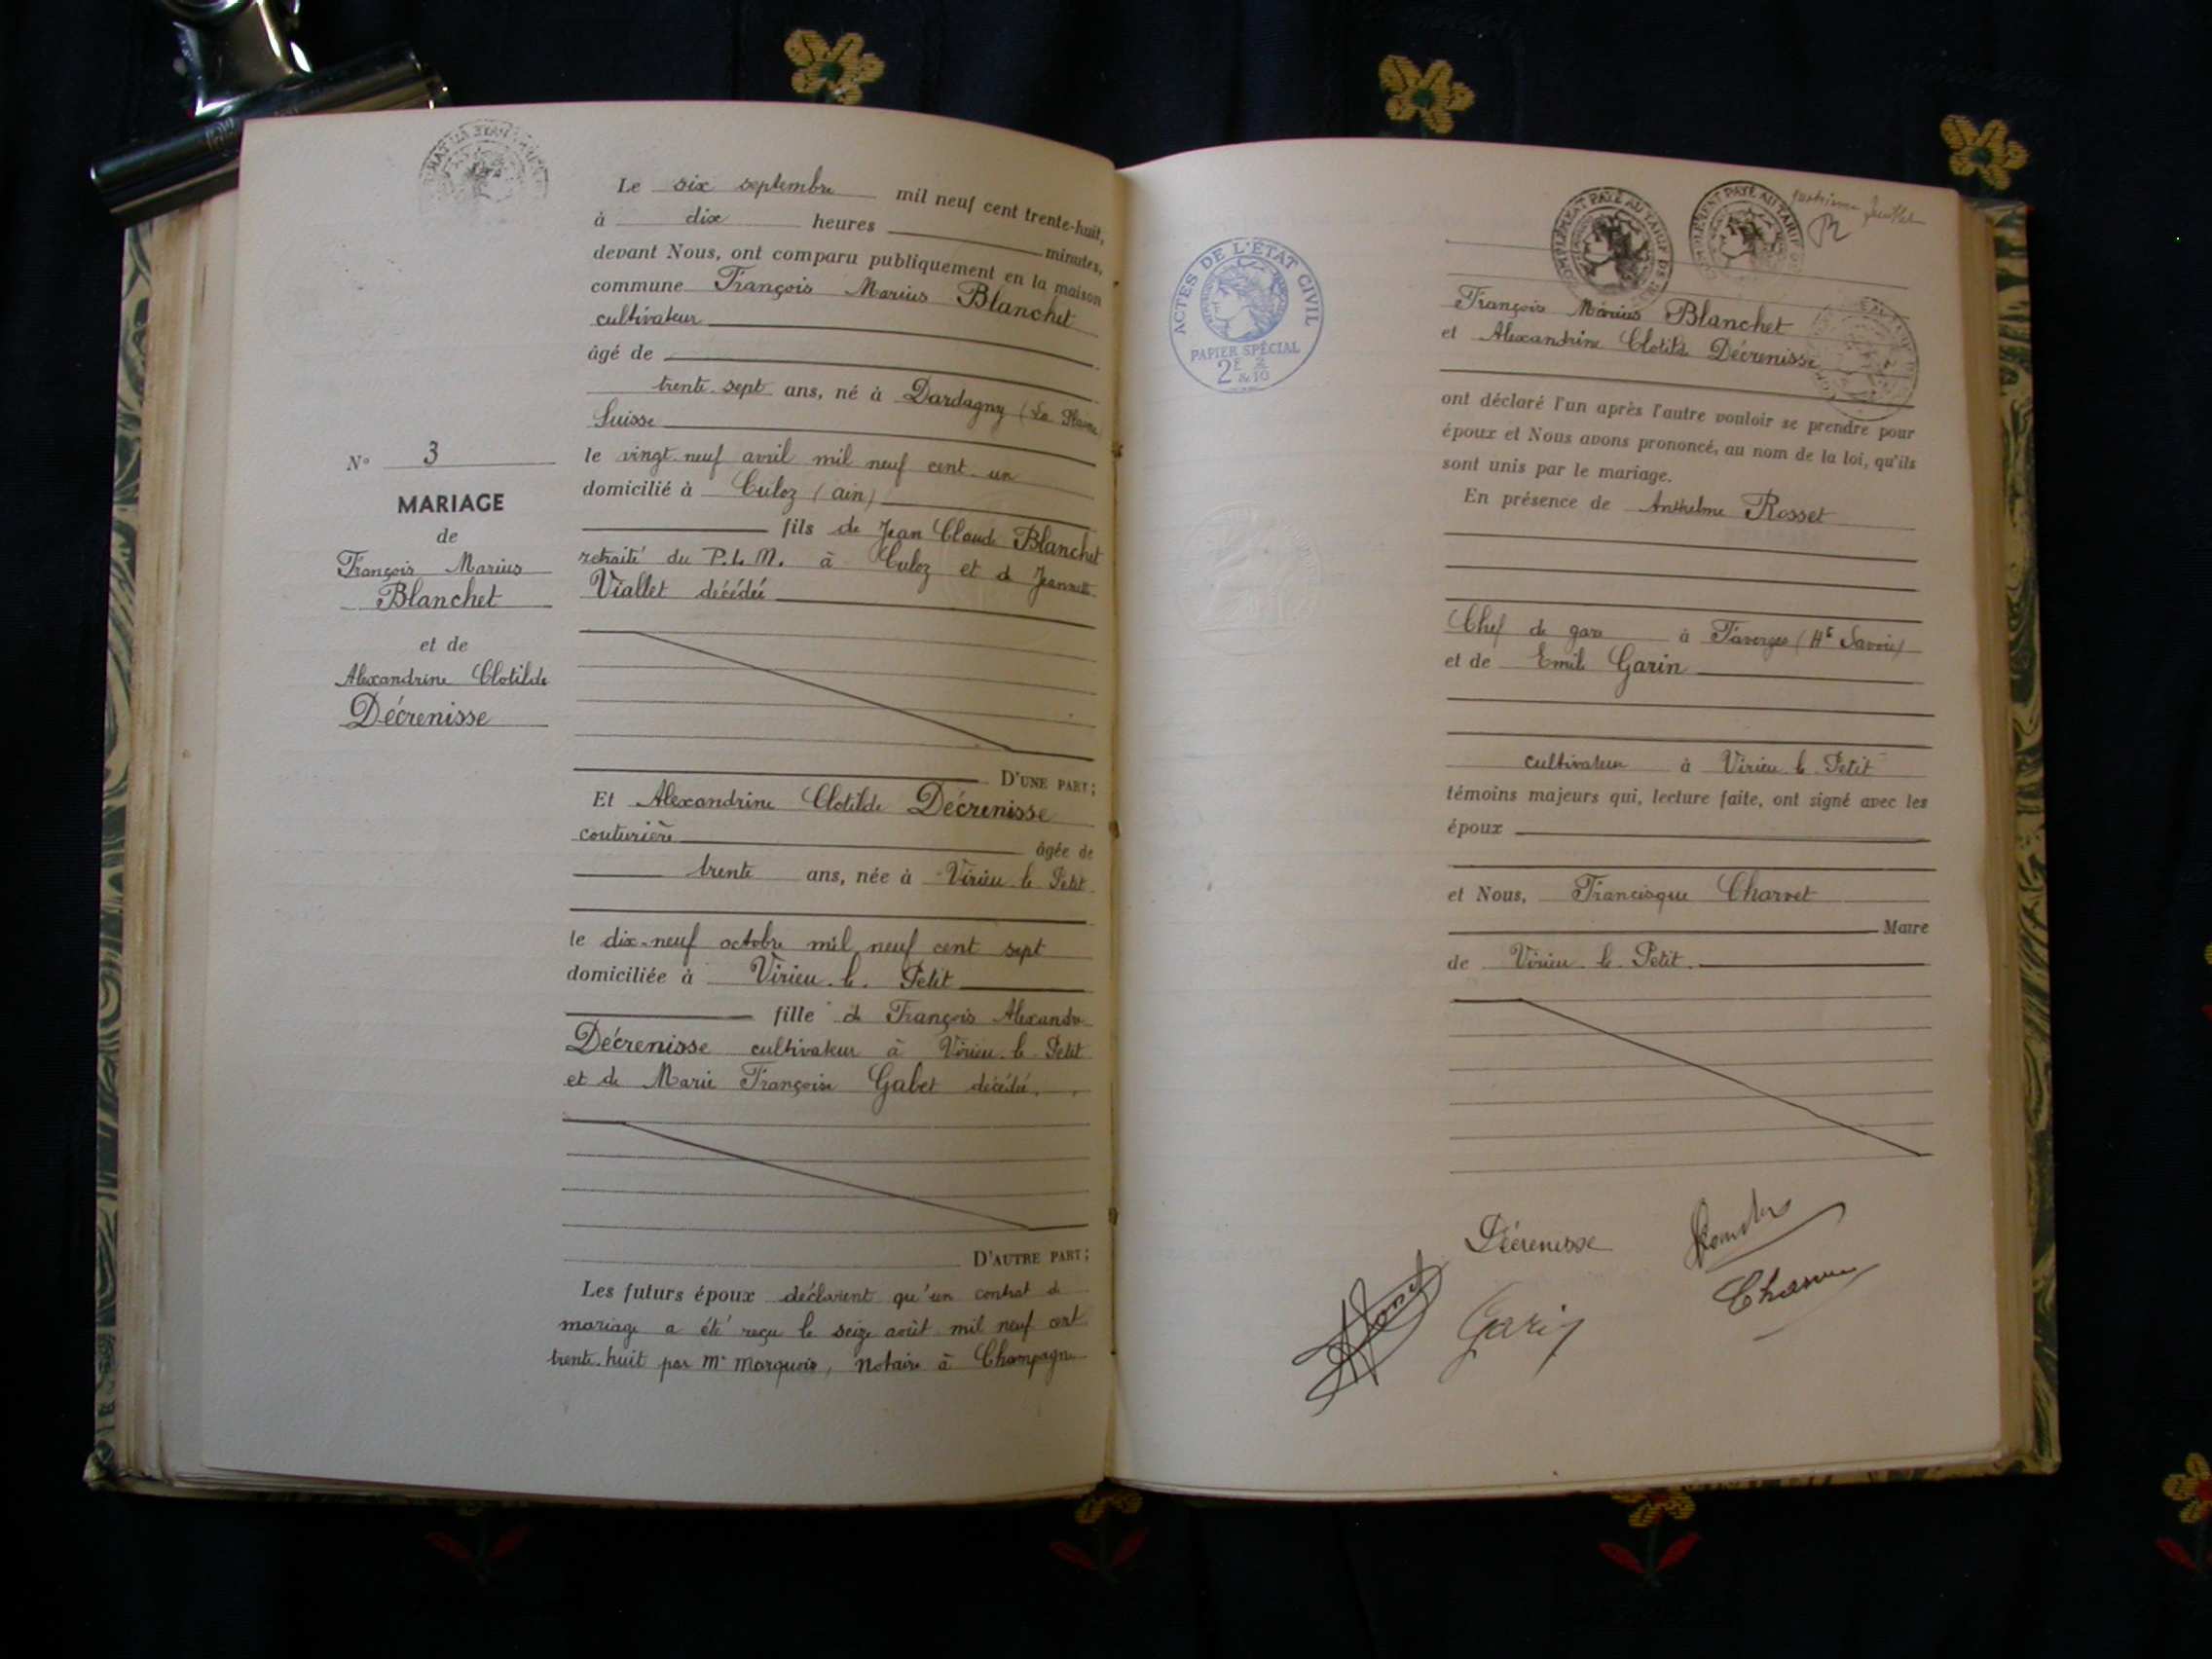 N° 3
MARIAGE
de
François Marius
Blanchet
et de
Alexandrine Clotilde
Décrenisse
Le six septembre mil neuf cent trente-huit,
à dix heures minutes,
devant Nous, ont comparu publiquement en la maison
commune François Marius Blanchet
cultivateur
âgé de
trente-sept ans, né à Dardagny (La Plaine
Suisse
le vingt-neuf avril mil neuf cent un
domicilié à Culoz (ain)
fils de Jean Claude Blanchet
retraité du P.L.M. à Culoz et de Jeannette
Viallet décédée
D'UNE PART;
Et Alexandrine Clotilde Décrenisse
couturière âgée de
trente ans, née à Virieu-le-Petit
le dix-neuf octobre mil neuf cent sept
domiciliée à Virieu-le-Petit
fille de François Alexandre
Décrenisse cultivateur à Virieu-le-Petit
et de Marie Françoise Gabet décédée.
D'AUTRE PART;
Les futurs époux déclarent qu'un contrat de
mariage a été reçu le seize août mil neuf cent
trente-huit par Me Marquois, notaire à Champagne
ACTES DE L'ÉTAT CIVIL
PAPIER SPÉCIAL
2F & 2/10
PAYÉ AU TARIF DE
PAYÉ AU TARIF
François Marius Blanchet
et Alexandrine Clotilde Décrenisse
ont déclaré l'un après l'autre vouloir se prendre pour
époux et Nous avons prononcé, au nom de la loi, qu'ils
sont unis par le mariage.
En présence de Anthelme Rosset
Chef de gare à Faverges (Hte Savoie)
et de Emile Garin
cultivateur à Virieu-le-Petit
témoins majeurs qui, lecture faite, ont signé avec les
époux
et Nous, Francisque Charvet
Maire
de Virieu-le-Petit.
Décrenisse
Garin